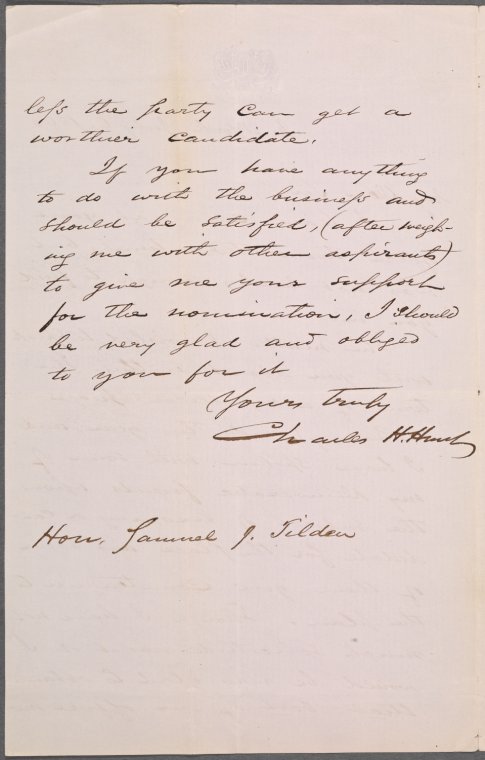 less the party can get a
worthier candidate.
If you have anything
to do with the business and
should be satisfied, (after weigh-
ing me with other aspirants)
to give me your support
for the nomination, I should
be very glad and obliged
to you for it
Yours truly
Charles H. Hunt
Hon. Samuel J. Tilden